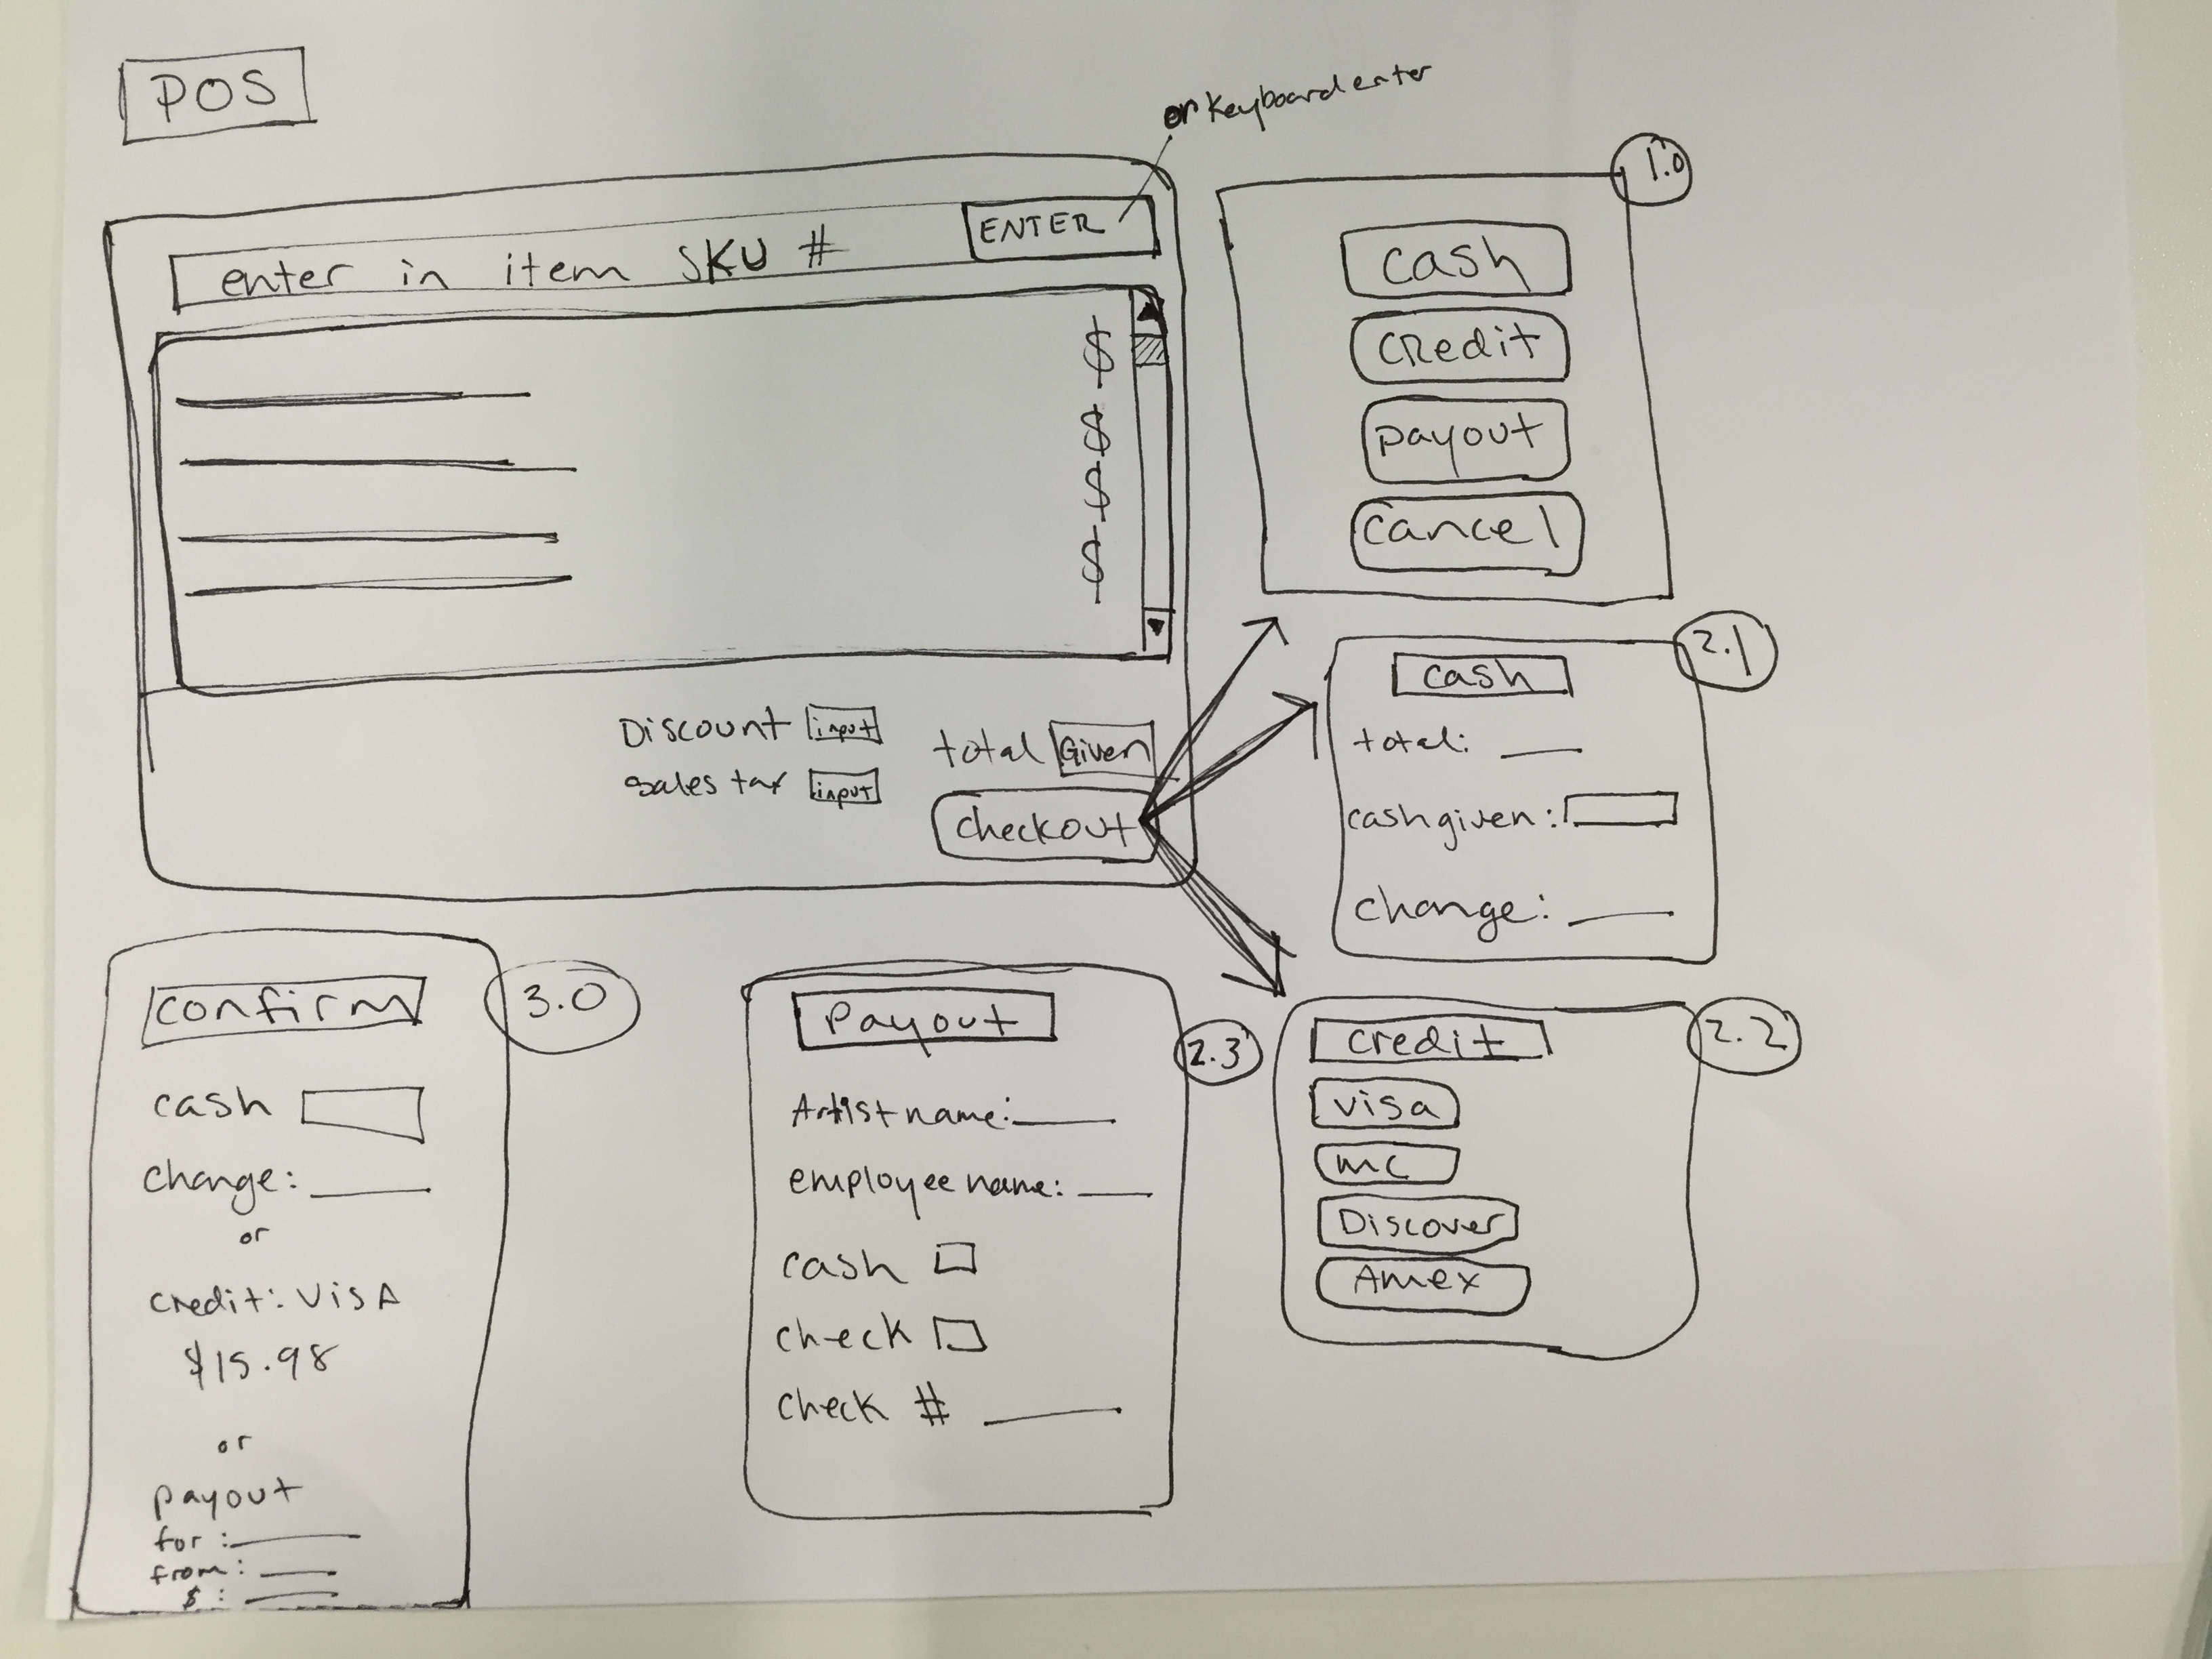 POS
enter in item SKU #
ENTER
or Keyboard enter
$
$
$
$
Discount input
sales tax input
total Given
checkout
1.0
Cash
Credit
Payout
Cancel
2.1
Cash
total:
cash given:
Change:
2.2
Credit
Visa
mc
Discover
Amex
2.3
Payout
Artist name:
employee name:
Cash
check
check #
3.0
Confirm
Cash
Change:
or
Credit: VISA
$15.98
or
Payout
for:
from:
$: